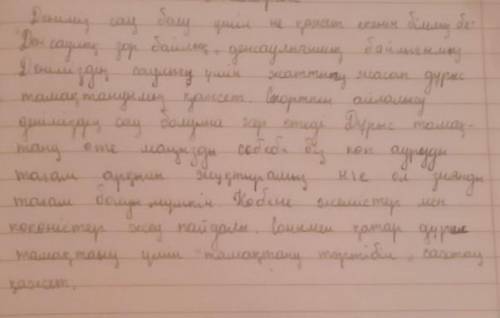 Денміз сау болу үшін не қажет екенін білеміз бе?
Денсаулық зор байлық, денсаулығының байлығының
Денеміздің саулығы үшін жаттығу жасап дұрыс
тамақтануымыз қажет. Спортпен айналысу
денеміздің сау болуына зор етеді Дұрыс тамақ-
тану өте маңызды себебі біз көп ауруды
тағам арқылы жұқтырамыз не ол зиянды
тағам болуы мүмкін Көбіне жемістер мен
көкөністер жеу пайдалы. Сонымен қатар дұрыс
тамақтану үшін тамақтану тәртібін, сақтау
қажет.